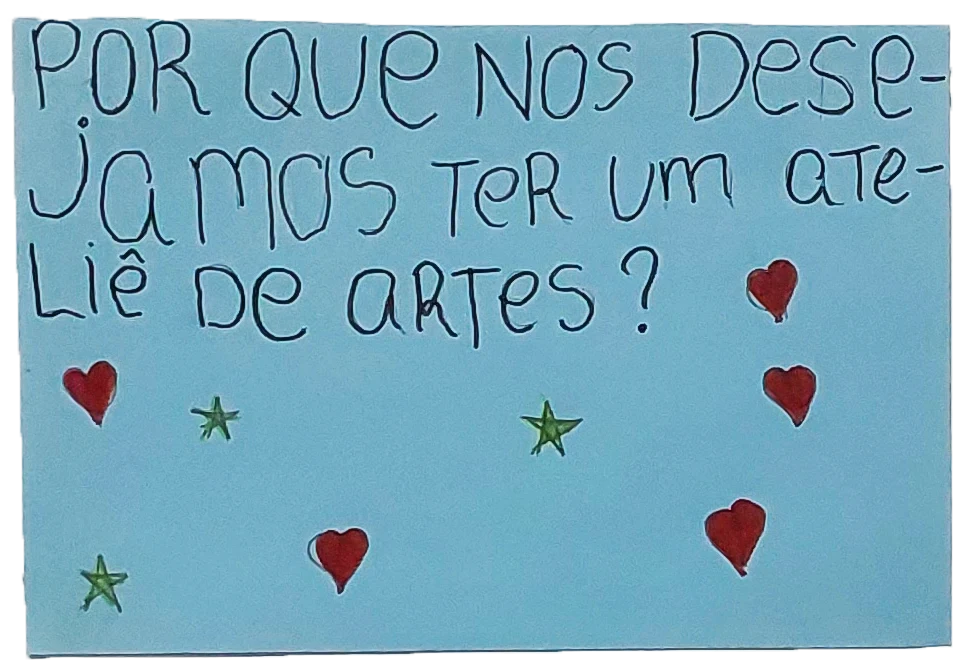 POR QUE NOS DESE-
jAMOS TER UM ATE-
LIÊ DE ARTES?